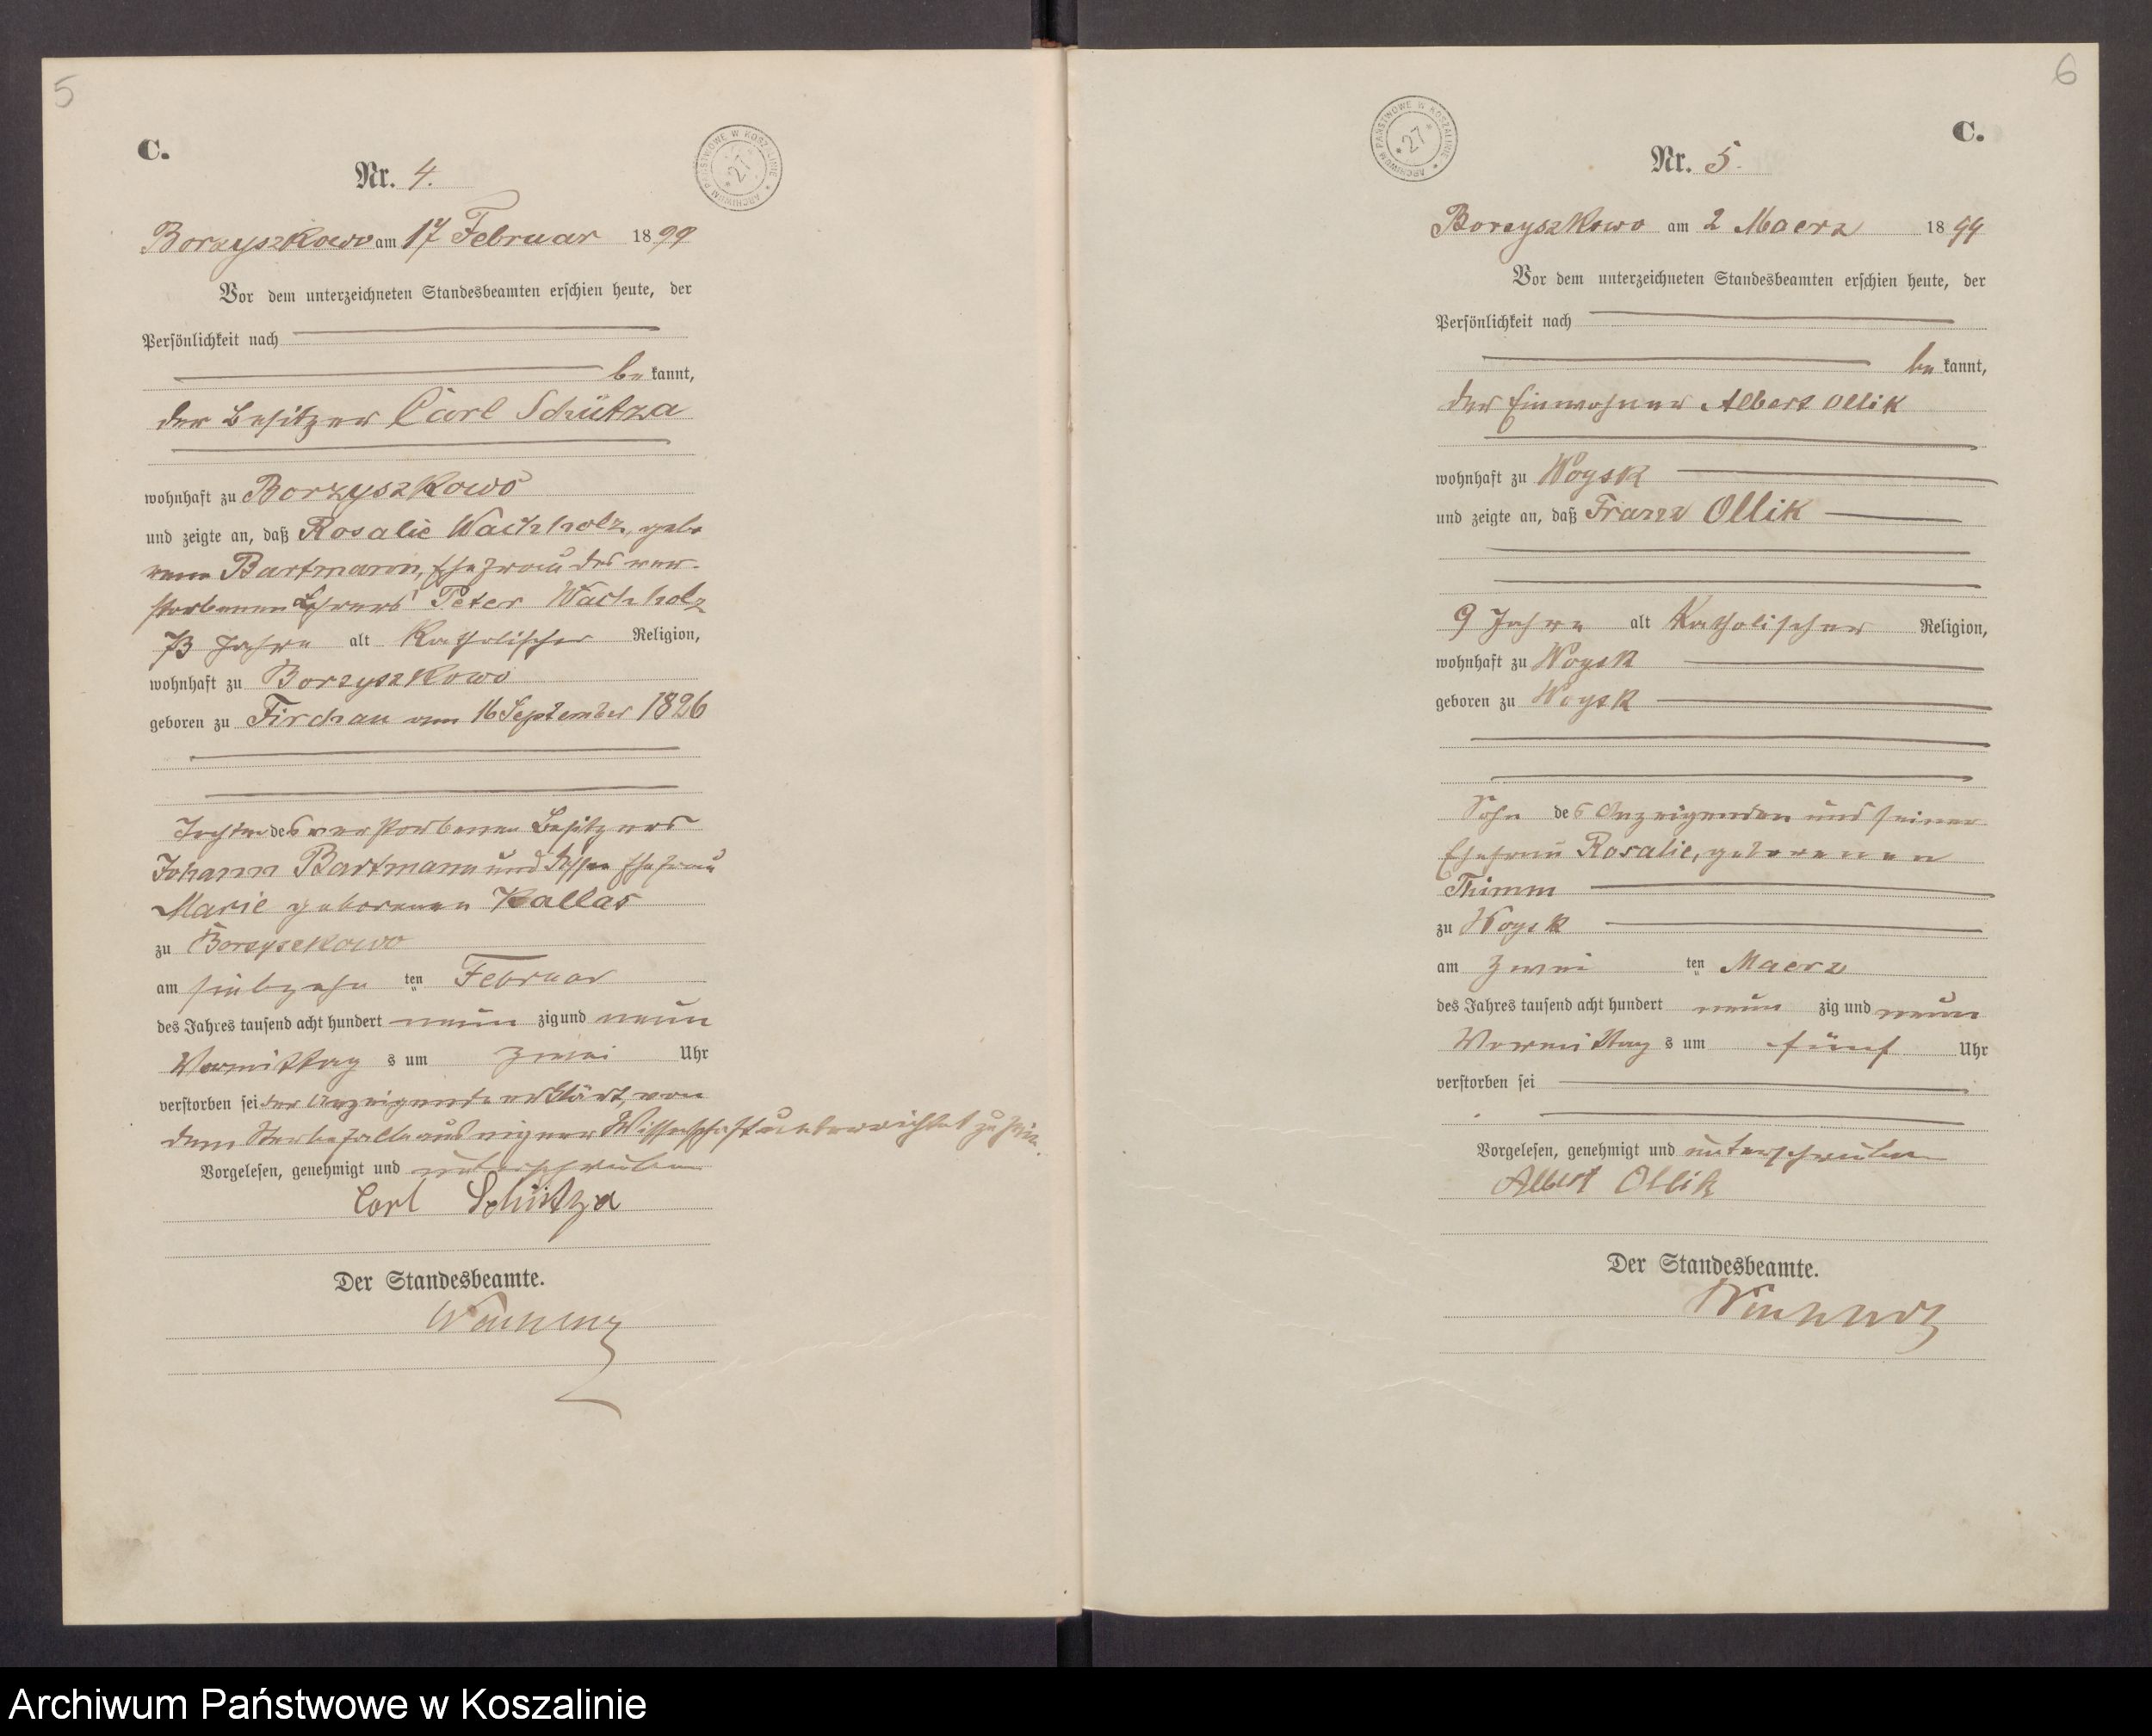 5
C.
Nr. 4.
ARCHIWUM PAŃSTWOWE W KOSZALINIE * 27 *
Borzyszkowo am 17 Februar 1899
Vor dem unterzeichneten Standesbeamten erschien heute, der
Persönlichkeit nach
be kannt,
der Besitzer Carl Schütza
wohnhaft zu Borzyszkowo
und zeigte an, daß Rosalie Wachholz, gebo
rene Bartmann, Ehefrau des ver-
storbenen Lehrers Peter Wachholz
73 Jahre alt Katholischer Religion,
wohnhaft zu Borzyszkowo
geboren zu Firchau am 16 September 1826
Tochter des verstorbenen Besitzers
Johann Bartmann und dessen Ehefrau
Marie geborenen Kallas
zu Borzyszkowo
am siebzehn ten Februar
des Jahres tausend acht hundert neun zig und neun
Vormittag s um zwei Uhr
verstorben sei der Anzeigende erklärt, von
dem Sterbefalle aus eigener Wissenschaft unterrichtet zu sein.
Vorgelesen, genehmigt und unterschrieben
Carl Schütza
Der Standesbeamte.
6
C.
Nr. 5.
ARCHIWUM PAŃSTWOWE W KOSZALINIE * 27 *
Borzyszkowo am 2 Maerz 1899
Vor dem unterzeichneten Standesbeamten erschien heute, der
Persönlichkeit nach
be kannt,
der Einwohner Albert Ollik
wohnhaft zu Woysk
und zeigte an, daß Franz Ollik
9 Jahre alt Katholischer Religion,
wohnhaft zu Woysk
geboren zu Woysk
Sohn des Anzeigenden und seiner
Ehefrau Rosalie, geborenen
Thimm
zu Woysk
am zwei ten Maerz
des Jahres tausend acht hundert neun zig und neun
Vormittag s um fünf Uhr
verstorben sei
Vorgelesen, genehmigt und unterschrieben
Albert Ollik
Der Standesbeamte.
Archiwum Państwowe w Koszalinie